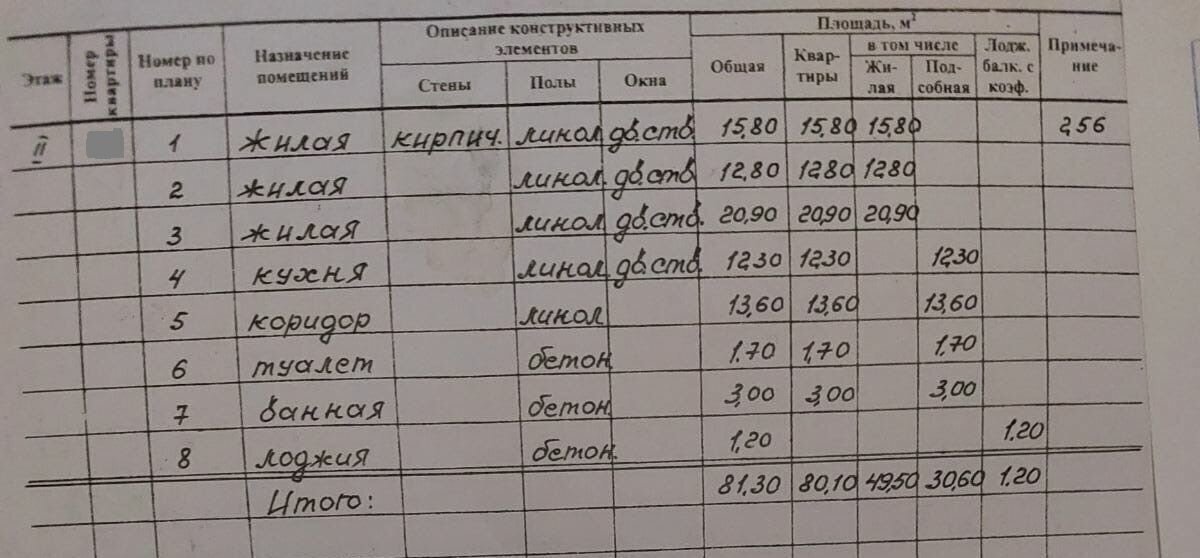 Этаж | Номер квартиры | Номер по плану | Назначение помещений | Описание конструктивных элементов | Площадь, м²
Стены | Полы | Окна | Общая | Квар-тиры | в том числе | Лодж. балк. с коэф. | Примеча-ние
Жи-лая | Под-собная
1 | жилая | кирпич. | линол | дв.ств. | 15,80 | 15,80 | 15,80 | 2,56
2 | жилая | линол. | дв.ств | 12,80 | 12,80 | 12,80
3 | жилая | линол | дв.ств. | 20,90 | 20,90 | 20,90
4 | кухня | линол | дв.ств. | 12,30 | 12,30 | 12,30
5 | коридор | линол | 13,60 | 13,60 | 13,60
6 | туалет | бетон | 1.70 | 1,70 | 1.70
7 | ванная | бетон | 3,00 | 3,00 | 3,00
8 | лоджия | бетон. | 1,20 | 1.20
Итого: | 81.30 | 80,10 | 49,50 | 30,60 | 1.20